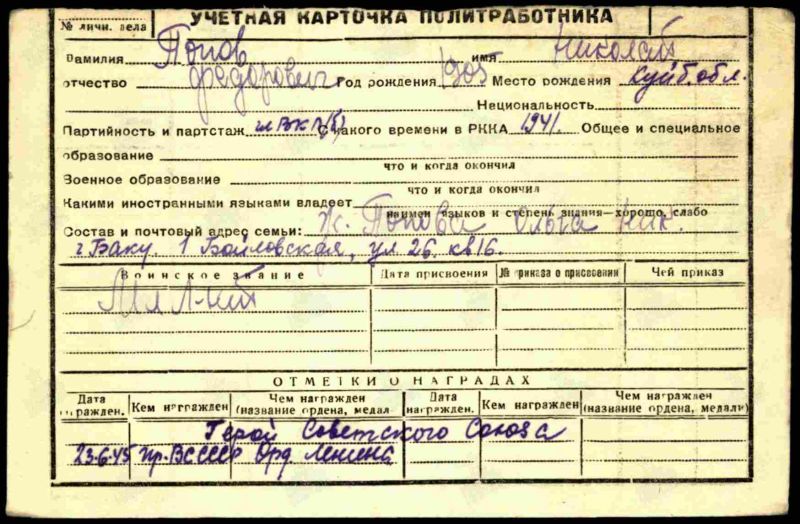 УЧЕТНАЯ КАРТОЧКА ПОЛИТРАБОТНИКА
№ личн. дела
Фамилия Попов имя Николай
отчество Федорович Год рождения 1905 Место рождения Куйб. обл.
Национальность
Партийность и партстаж чл ВКП(б) С какого времени в РККА 1941. Общее и специальное
образование
что и когда окончил
Военное образование
что и когда окончил
Какими иностранными языками владеет
наимен языков и степень знания—хорошо, слабо
Состав и почтовый адрес семьи: ж. Попова Ольга Ник.
г Баку. 1 Баиловская, ул 26. кв 16.
Воинское звание Дата присвоения № приказа о присвоении Чей приказ
Мл Л-нт
ОТМЕТКИ О НАГРАДАХ
Дата награжден. Кем награжден Чем награжден (название ордена, медал Дата награжден. Кем награжден Чем награжден (название ордена, медали)
Герой Советского Союза
23.6.45 пр. ВС СССР Орд Ленина